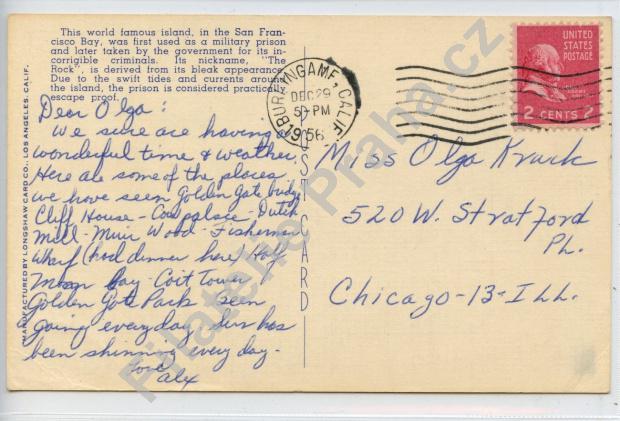 This world famous island, in the San Fran-
cisco Bay, was first used as a military prison
and later taken by the government for its in-
corrigible criminals. Its nickname, "The
Rock", is derived from its bleak appearance.
Due to the swift tides and currents around
the island, the prison is considered practically
escape proof.
MANUFACTURED BY LONGSHAW CARD CO., LOS ANGELES, CALIF.
Dear Olga:
We sure are having a
wonderful time & weather.
Here are some of the places
we have seen Golden Gate bridge
Cliff House - Cow palace - Dutch
Mill - Muir Wood - Fisherman
Wharf (had dinner here) Half
Moon Bay - Coit Tower
Golden Gate Park seen
going everyday sun has
been shinning every day -
love
Alex
POST CARD
BURLINGAME, CALIF.
DEC 29
5 - PM
1956
UNITED
STATES
POSTAGE
2 CENTS 2
Miss Olga Kruck
520 W. Stratford
Pl.
Chicago - 13 - ILL.
Filatelie Praha.cz